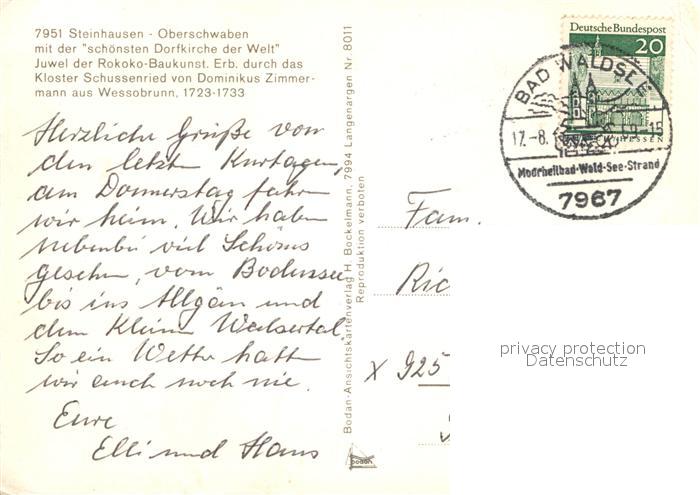 7951 Steinhausen - Oberschwaben
mit der "schönsten Dorfkirche der Welt"
Juwel der Rokoko-Baukunst. Erb. durch das
Kloster Schussenried von Dominikus Zimmer-
mann aus Wessobrunn, 1723-1733
Herzliche Grüße von
den letzten Kurtagen,
am Donnerstag fahren
wir heim. Wir haben
nebenbei viel Schönes
gesehen, vom Bodensee
bis ins Allgäu und
dem Kleinen Walsertal.
So ein Wetter hatten
wir auch noch nie.
Eure
Elli und Hans
Bodan-Ansichtskartenverlag H. Bockelmann, 7994 Langenargen Nr. 8011
Reproduktion verboten
bodan
Deutsche Bundespost
20
BAD WALDSEE
17.-8.
Moorheilbad-Wald-See-Strand
7967
Fam.
Ric
X 925
privacy protection
Datenschutz